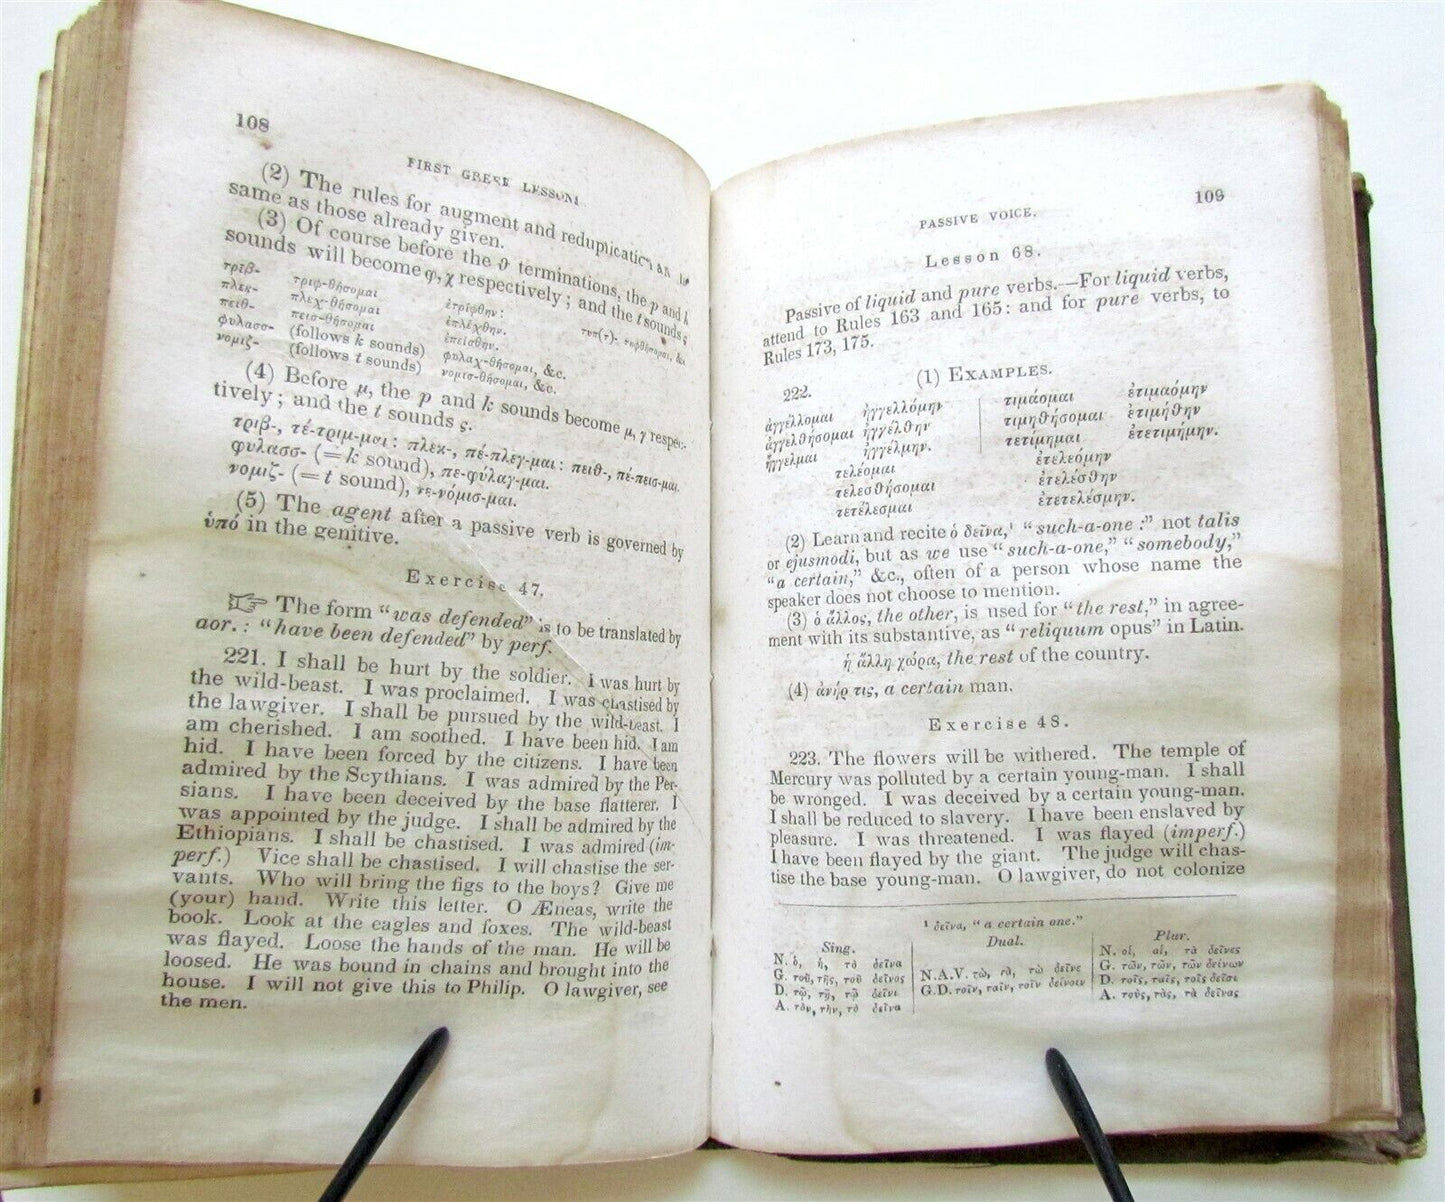 108
FIRST GREEK LESSONS
(2) The rules for augment and reduplication
same as those already given.
(3) Of course before the ϑ terminations, the p and k
sounds will become φ, χ respectively; and the t sounds ς
τριβ- τριφ-θήσομαι ἐτρίφθην:
πλεκ- πλεχ-θήσομαι ἐπλέχθην. τυπ(τ)- τυφθήσομαι, &c.
πειθ- πεισ-θήσομαι ἐπείσθην.
φυλασσ- (follows k sounds) φυλαχ-θήσομαι, &c.
νομιζ- (follows t sounds) νομισ-θήσομαι, &c.
(4) Before μ, the p and k sounds become μ, γ respec-
tively; and the t sounds ς.
τριβ-, τέ-τριμ-μαι: πλεκ-, πέ-πλεγ-μαι: πειθ-, πέ-πεισ-μαι.
φυλασσ- (=k sound), πε-φύλαγ-μαι.
νομιζ- (=t sound), νε-νόμισ-μαι.
(5) The agent after a passive verb is governed by
ὑπό in the genitive.
Exercise 47.
☞ The form "was defended" is to be translated by
aor.: "have been defended" by perf.
221. I shall be hurt by the soldier. I was hurt by
the wild-beast. I was proclaimed. I was chastised by
the lawgiver. I shall be pursued by the wild-beast. I
am cherished. I am soothed. I have been hid. I am
hid. I have been forced by the citizens. I have been
admired by the Scythians. I was admired by the Per-
sians. I have been deceived by the base flatterer. I
was appointed by the judge. I shall be admired by the
Ethiopians. I shall be chastised. I was admired (im-
perf.) Vice shall be chastised. I will chastise the ser-
vants. Who will bring the figs to the boys? Give me
(your) hand. Write this letter. O Æneas, write the
book. Look at the eagles and foxes. The wild-beast
was flayed. Loose the hands of the man. He will be
loosed. He was bound in chains and brought into the
house. I will not give this to Philip. O lawgiver, see
the men.
PASSIVE VOICE. 109
Lesson 68.
Passive of liquid and pure verbs.—For liquid verbs,
attend to Rules 163 and 165: and for pure verbs, to
Rules 173, 175.
(1) EXAMPLES.
222.
ἀγγέλλομαι ἠγγελλόμην τιμάομαι ἐτιμαόμην
ἀγγελθήσομαι ἠγγέλθην τιμηθήσομαι ἐτιμήθην
ἤγγελμαι ἠγγέλμην. τετίμημαι ἐτετιμήμην.
τελέομαι ἐτελεόμην
τελεσθήσομαι ἐτελέσθην
τετέλεσμαι ἐτετελέσμην.
(2) Learn and recite ὁ δεῖνα,¹ "such-a-one:" not talis
or ejusmodi, but as we use "such-a-one," "somebody,"
"a certain," &c., often of a person whose name the
speaker does not choose to mention.
(3) ὁ ἄλλος, the other, is used for "the rest," in agree-
ment with its substantive, as "reliquum opus" in Latin.
ἡ ἄλλη χώρα, the rest of the country.
(4) ἀνήρ τις, a certain man.
Exercise 48.
223. The flowers will be withered. The temple of
Mercury was polluted by a certain young-man. I shall
be wronged. I was deceived by a certain young-man.
I shall be reduced to slavery. I have been enslaved by
pleasure. I was threatened. I was flayed (imperf.)
I have been flayed by the giant. The judge will chas-
tise the base young-man. O lawgiver, do not colonize
¹ δεῖνα, "a certain one."
Sing. Dual. Plur.
N. ὁ, ἡ, τὸ δεῖνα N. οἱ, αἱ, τὰ δεῖνες
G. τοῦ, τῆς, τοῦ δεῖνος N.A.V. τὼ, τὰ, τὼ δεῖνε G. τῶν, τῶν, τῶν δείνων
D. τῷ, τῇ, τῷ δεῖνι G.D. τοῖν, ταῖν, τοῖν δείνοιν D. τοῖς, ταῖς, τοῖς δεῖσι
A. τὸν, τὴν, τὸ δεῖνα A. τοὺς, τὰς, τὰ δεῖνας